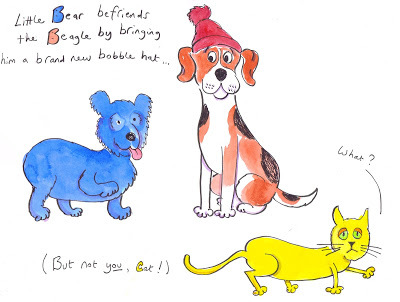 Little Bear befriends
the Beagle by bringing
him a brand new bobble hat...
What?
(But not you, Cat!)